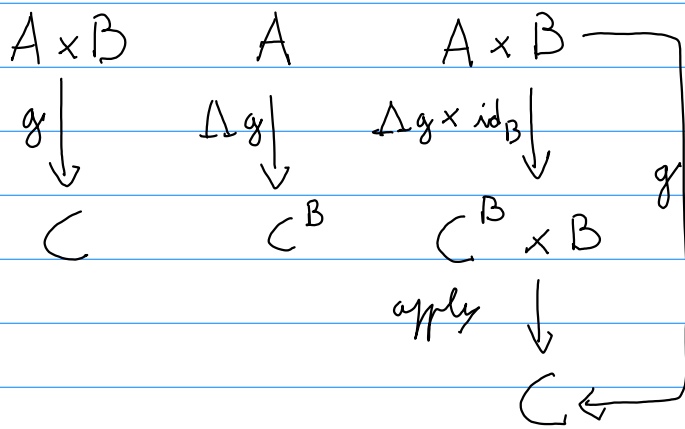 A × B A A × B
g Λg Λg × id_B g
C C^B C^B × B
apply
C